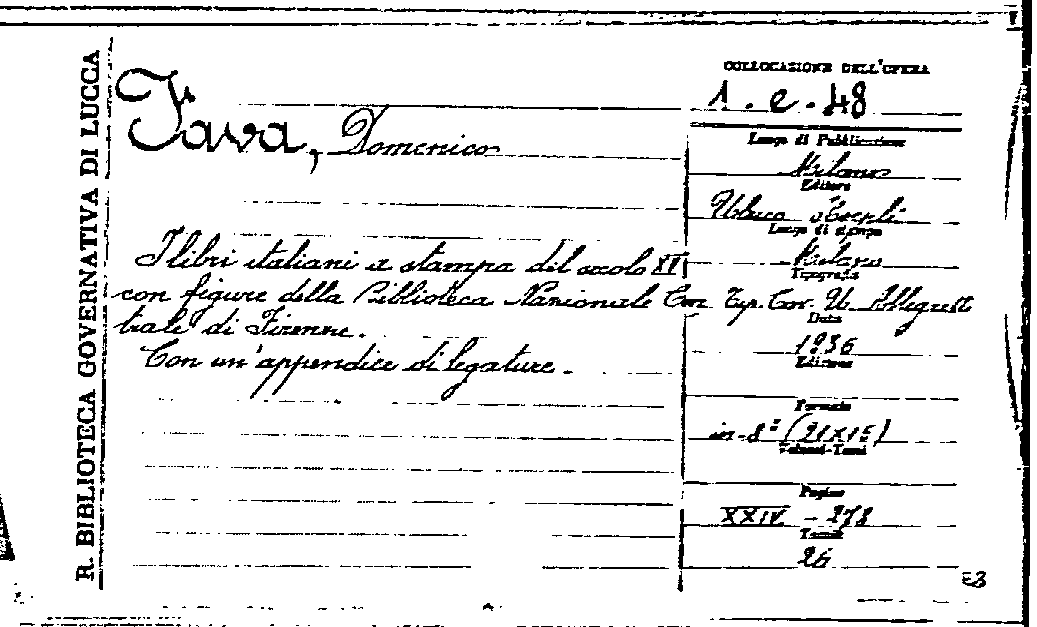 R. BIBLIOTECA GOVERNATIVA DI LUCCA
Fava, Domenico
I libri italiani a stampa del secolo XV
con figure della Biblioteca Nazionale Cen
trale di Firenze.
Con un'appendice di legature.
COLLOCAZIONE DELL'OPERA
1. e. 48
Luogo di Pubblicazione
Milano
Editore
Ulrico Hoepli
Luogo di stampa
Milano
Tipografia
Tip. Cav. U. Allegretti
Data
1936
Edizione
Formato
in-8º (21x15)
Volumi-Tomi
Pagine
XXIV - 278
Tavole
26